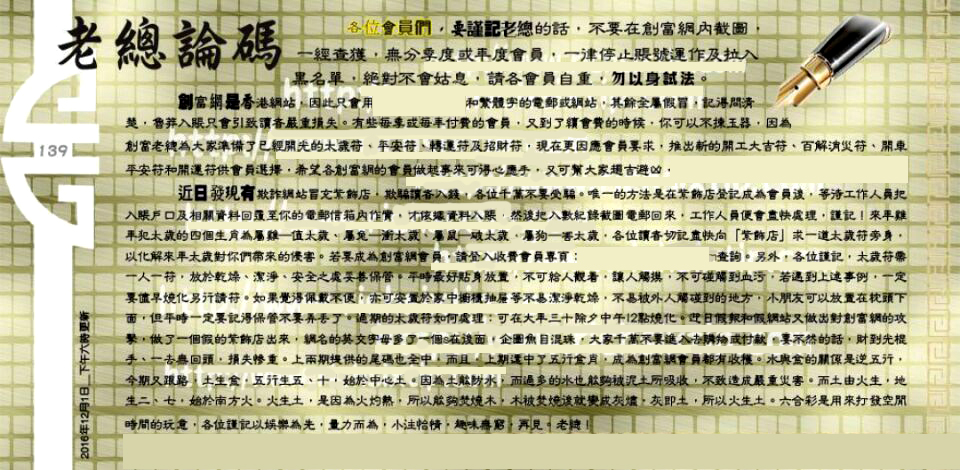 老總論碼
各位會員們，要謹記老總的話，不要在創富網內截圖，
一經查獲，無分季度或年度會員，一律停止賬號運作及拉入
黑名單，絕對不會姑息，請各會員自重，勿以身試法。
創富網是香港網站，因此只會用 和繁體字的電郵或網站，其餘全屬假冒，記得問清
楚，魯莽入賬只會引致讀者嚴重損失。有些每季或每年付費的會員，又到了續會費的時候，你可以不揀玉器，因為
創富老總為大家準備了已經開光的太歲符、平安符、轉運符及招財符，現在更因應會員要求，推出新的開工大吉符、百解消災符、開車
平安符和開運符供會員選擇，希望各創富網的會員做起事來可得心應手，又可幫大家趨吉避凶。
近日發現有欺詐網站冒充紫飾店，欺騙讀者入錢，各位千萬不要受騙。唯一的方法是在紫飾店登記成為會員後，等待工作人員把
入賬戶口及相關資料回覆至你的電郵信箱內作實，才依據資料入賬，然後把入數紀錄截圖電郵回來，工作人員便會盡快處理，謹記！來年雞
年犯太歲的四個生肖為屬雞—值太歲、屬兔—衝太歲、屬鼠—破太歲、屬狗—害太歲，各位讀者切記盡快向「紫飾店」求一道太歲符旁身，
以化解來年太歲對你們帶來的侵害。若要成為創富網會員，請登入收費會員專頁： 查詢。另外，各位謹記，太歲符需
一人一符，放於乾燥、潔淨、安全之處妥善保管。平時最好貼身放置，不可給人觀看，讓人觸摸，不可碰觸到血污，若遇到上述事例，一定
要儘早燒化另行請符。如果覺得佩戴不便，亦可安置於家中櫥櫃抽屜等不易潔淨乾燥，不易被外人觸碰到的地方，小朋友可以放置在枕頭下
面，但平時一定要記得保管不要弄丟了。過期的太歲符如何處理：可在大年三十除夕中午12點燒化。近日假報和假網站又做出對創富網的攻
擊，做了一個假的紫飾店出來，網名的英文字母多了一個s在後面，企圖魚目混珠，大家千萬不要進入去購物或付款，要不然的話，財到光棍
手，一去無回頭，損失慘重。上兩期提供的尾碼也全中，而且，上期還中了五行金肖，成為創富網會員都有收穫。水與金的關係是逆五行，
今期又跟路，土生金，五行生五、十，始於中心土。因為土能防水，而過多的水也能夠被泥土所吸收，不致造成嚴重災害。而土由火生，地
生二、七，始於南方火。火生土，是因為火灼熱，所以能夠焚燒木，木被焚燒後就變成灰燼，灰即土，所以火生土。六合彩是用來打發空閒
時間的玩意，各位謹記以娛樂為先，量力而為，小注怡情，趣味無窮，再見。老總！
139
2016年12月1日，下午六時更新